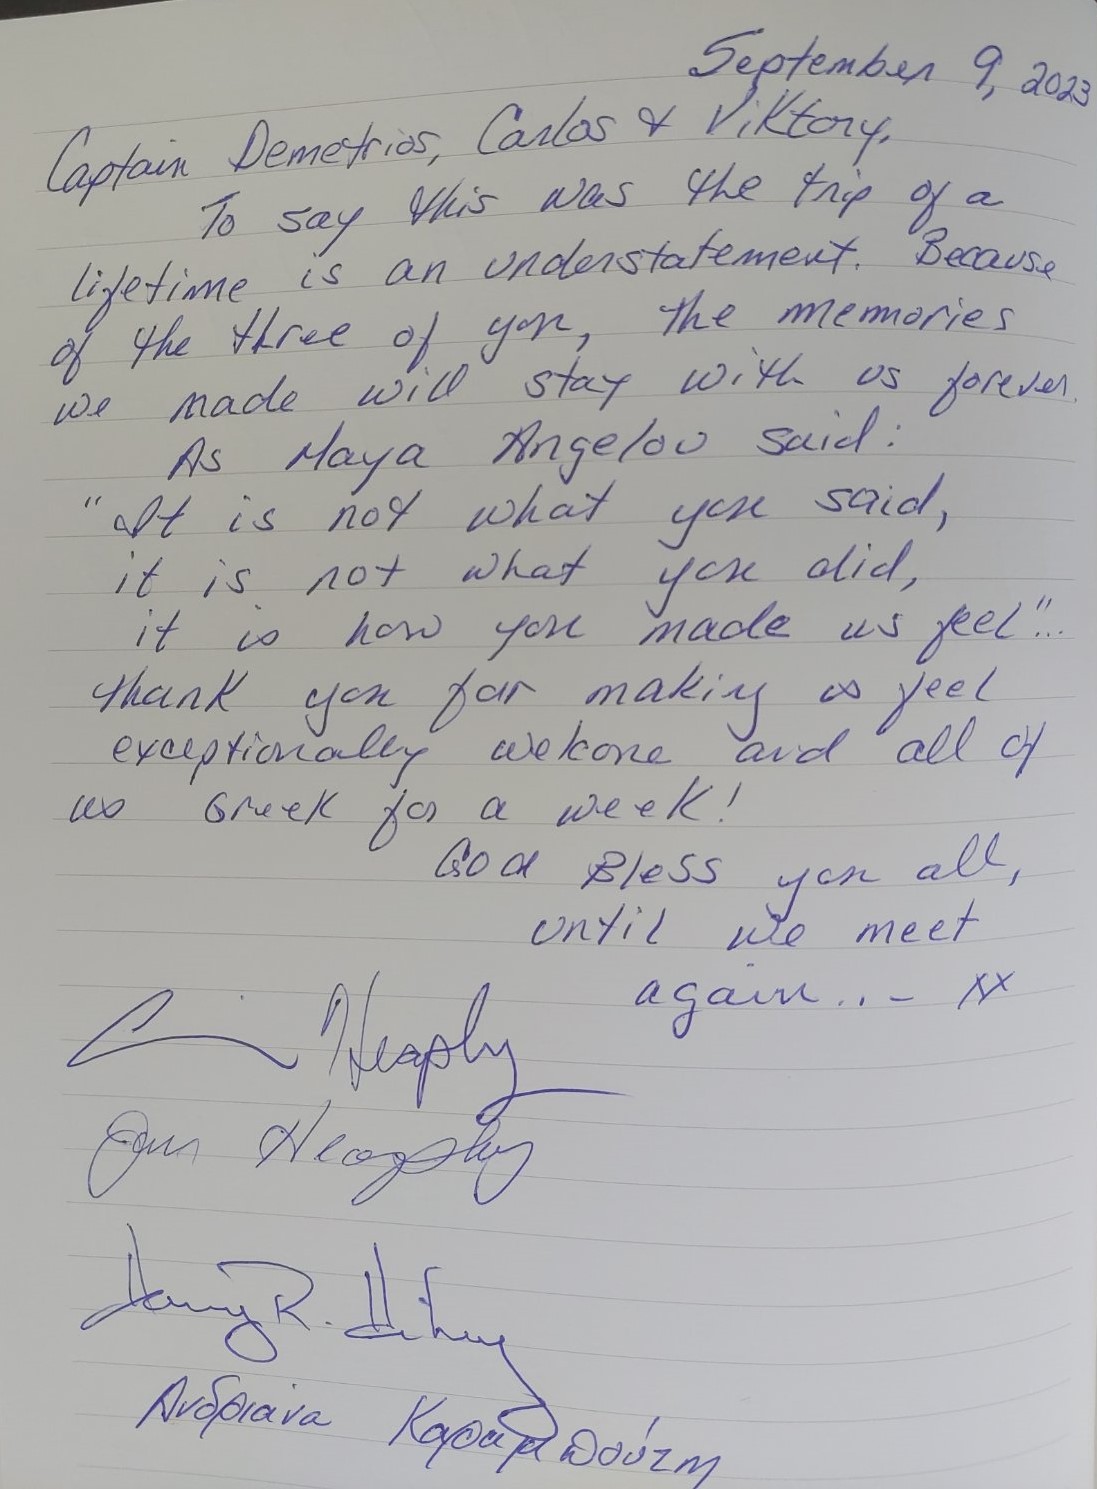 September 9, 2023
Captain Demetrios, Carlos & Viktory,
To say this was the trip of a
lifetime is an understatement. Because
of the three of you, the memories
we made will stay with us forever.
As Maya Angelou said:
"It is not what you said,
it is not what you did,
it is how you made us feel"...
thank you for making us feel
exceptionally welcome and all of
us Greek for a week!
God Bless you all,
until we meet
again... - xx
Heaphy
Heaphy
R.
Ανδριάνα